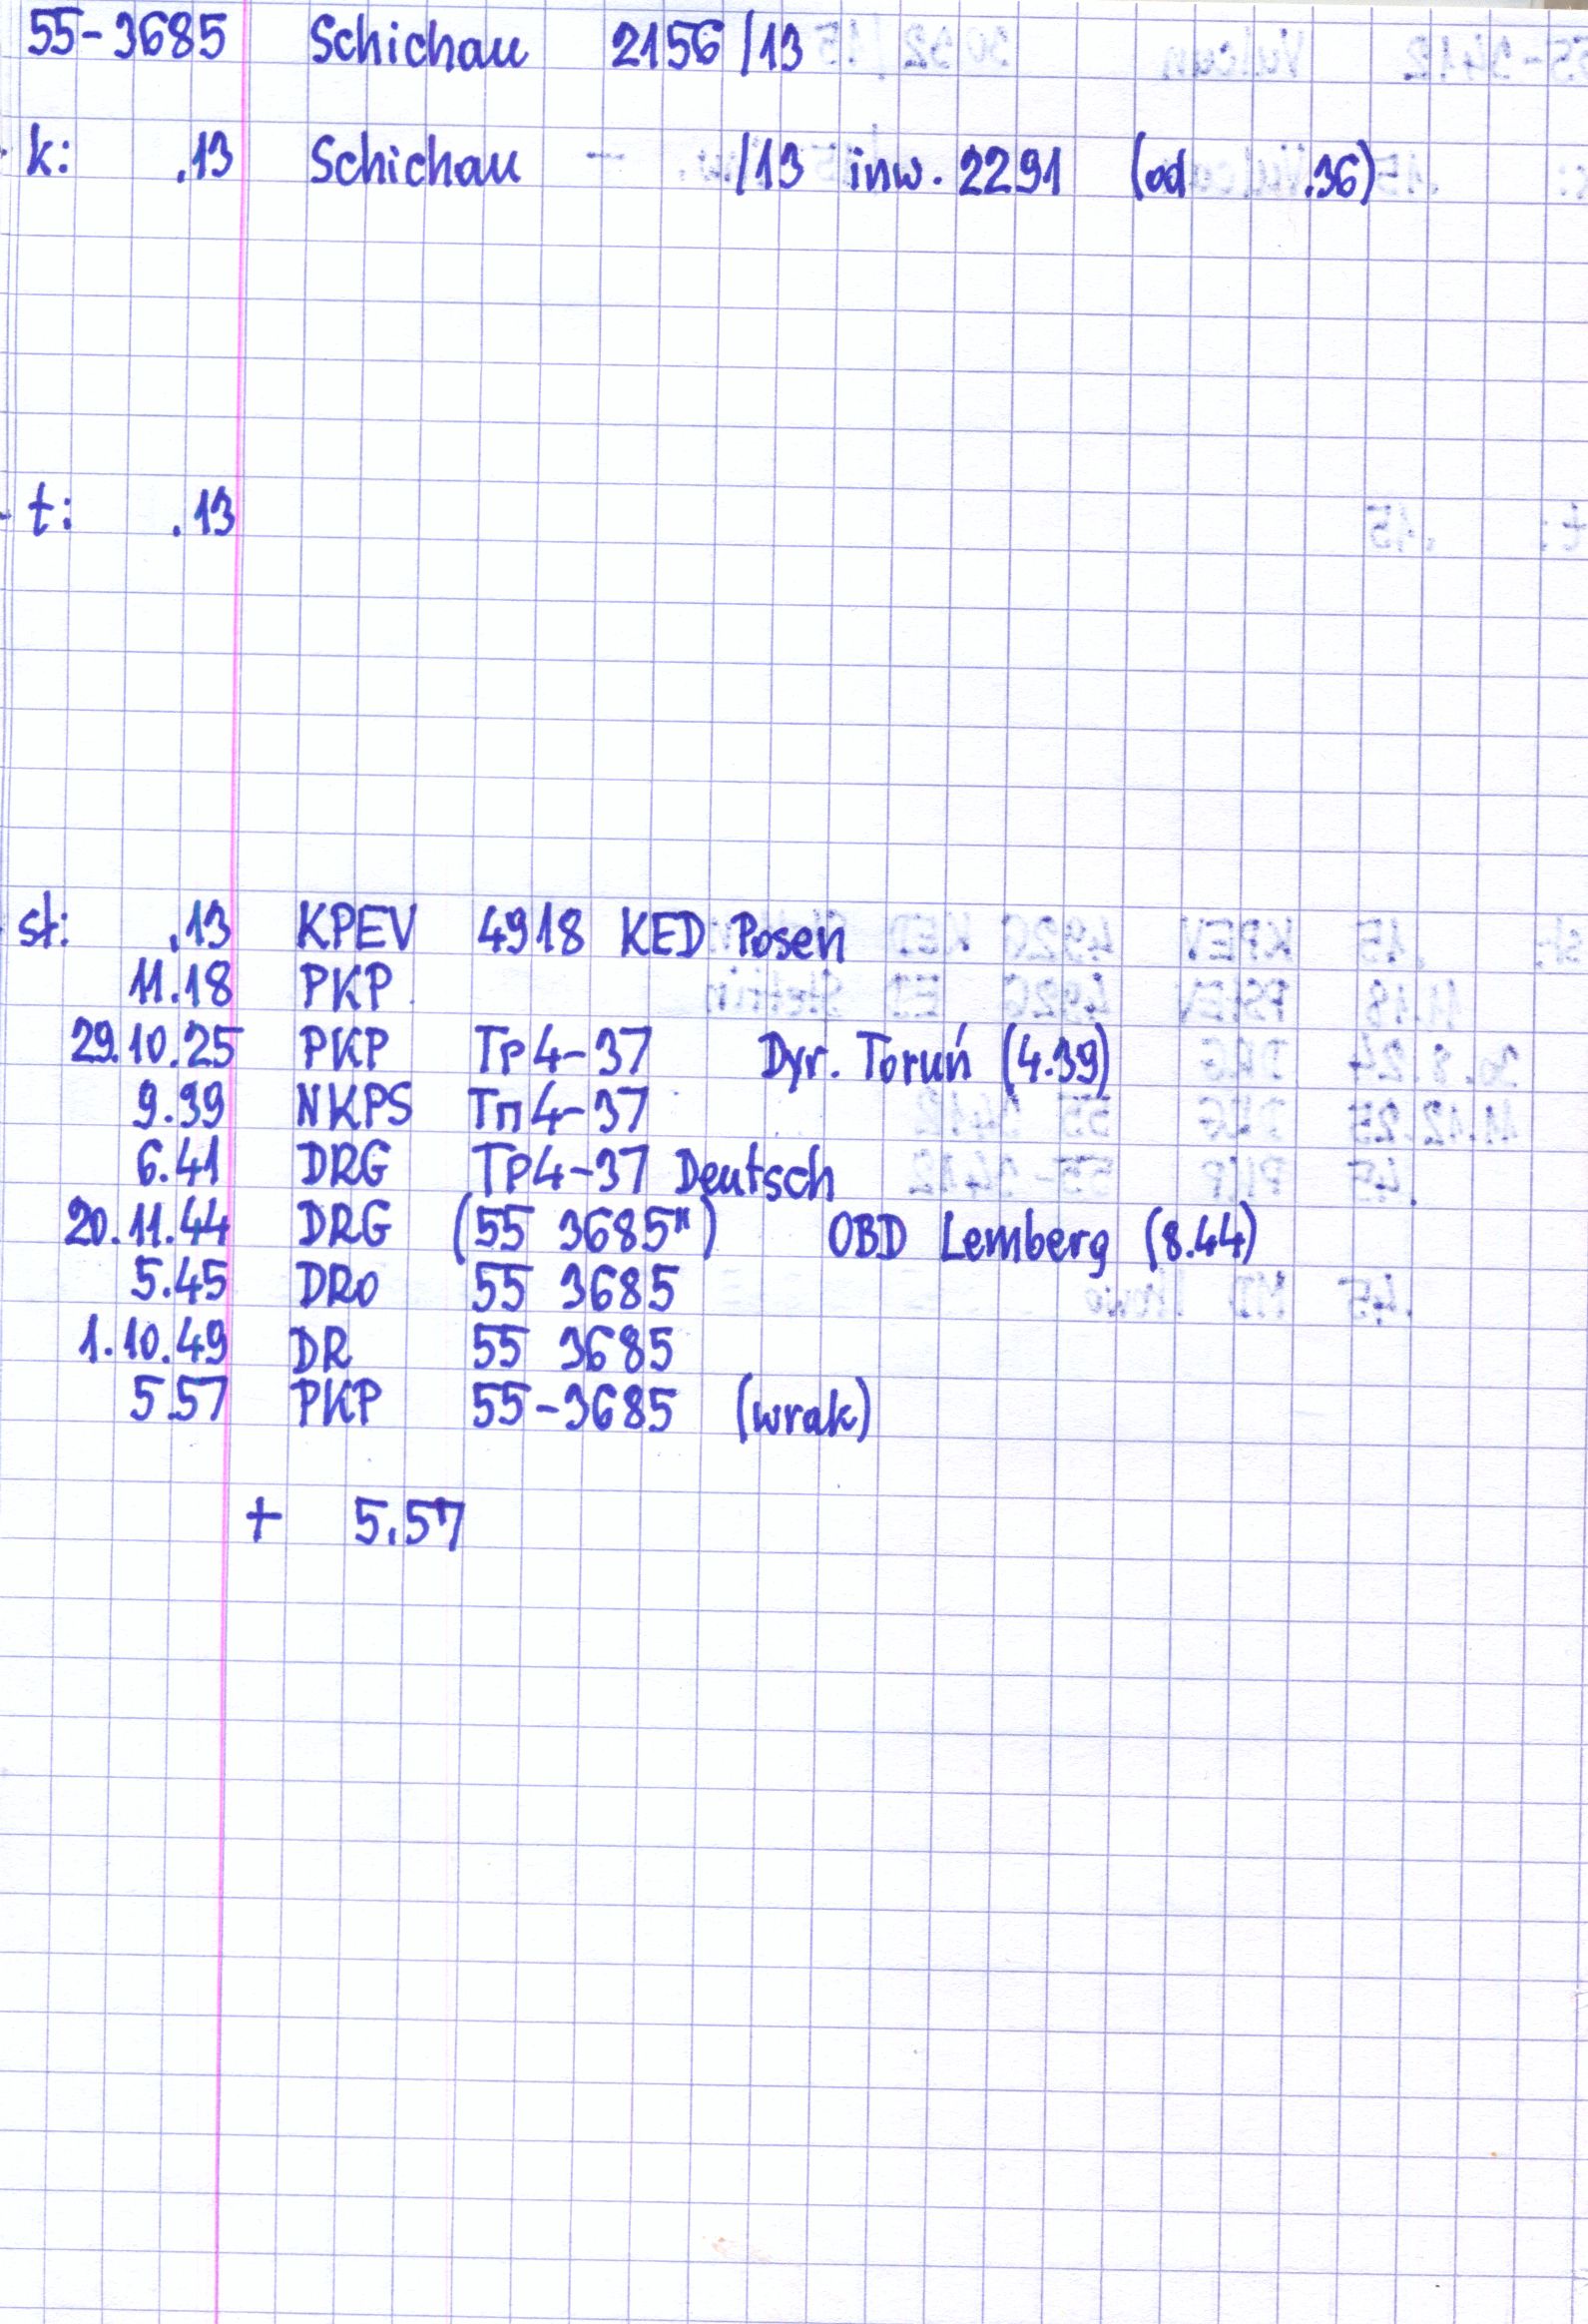 55-3685 Schichau 2156/13
k: .13 Schichau - /13 inw. 2291 (od .36)
t: .13
st: .13 KPEV 4918 KED Posen
11.18 PKP
29.10.25 PKP Tp4-37 Dyr. Toruń (4.39)
9.39 NKPS Тп4-37
6.41 DRG Tp4-37 Deutsch
20.11.44 DRG (55 3685") OBD Lemberg (8.44)
5.45 DRo 55 3685
1.10.49 DR 55 3685
5.57 PKP 55-3685 (wrak)
+ 5.57